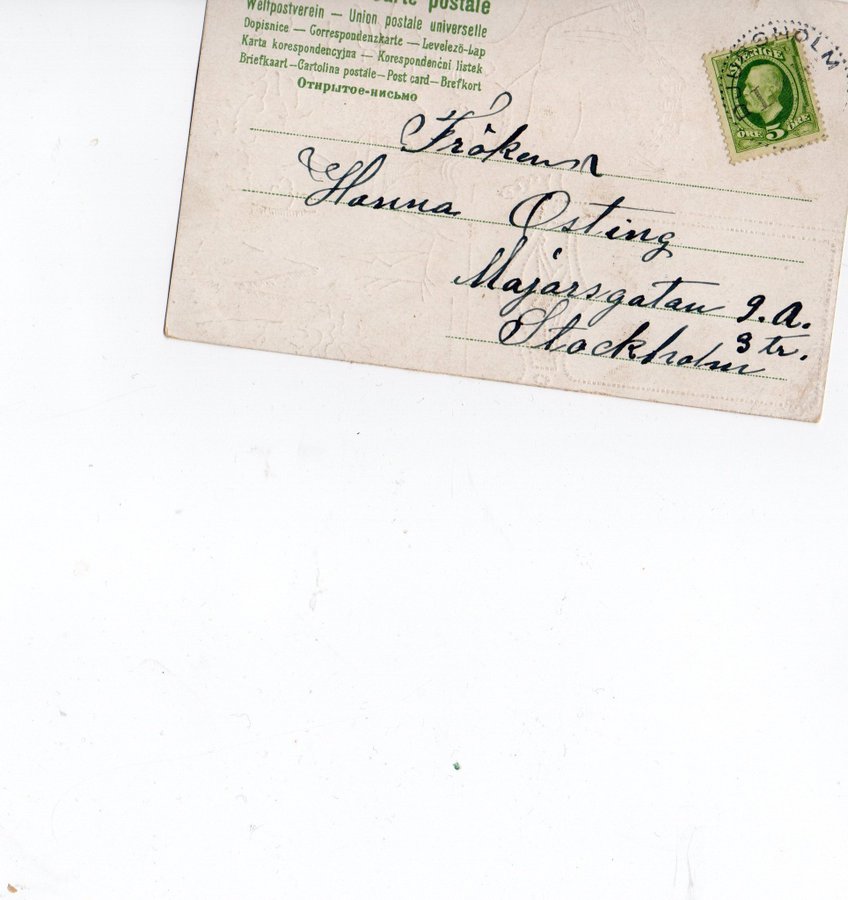 carte postale
Weltpostverein — Union postale universelle
Dopisnice — Correspondenzkarte — Levelező-Lap
Karta korespondencyjna — Korespondenční listek
Briefkaart—Cartolina postale—Post card—Brefkort
Открытое-письмо
SVERIGE
ÖRE 5 ÖRE
Fröken
Hanna Osting
Majorsgatan 9.A.
3 tr.
Stockholm